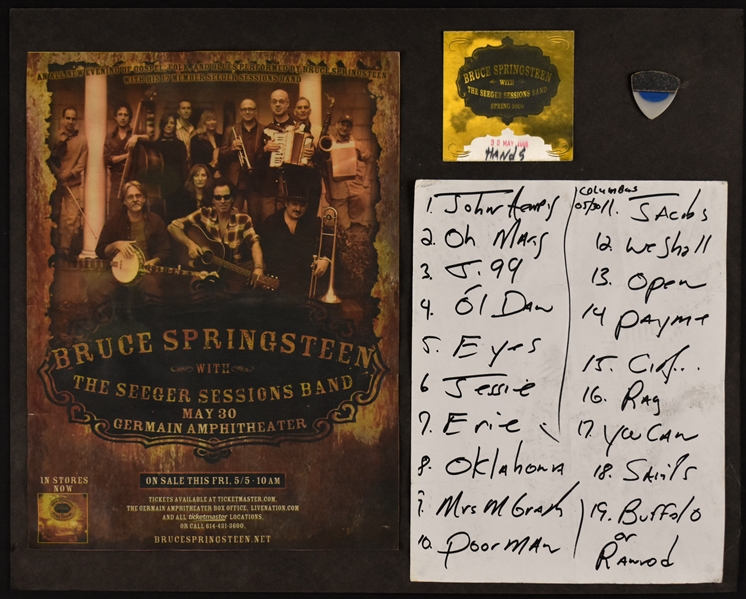 AN ALL NEW EVENING OF GOSPEL, FOLK AND BLUES PERFORMED BY BRUCE SPRINGSTEEN
WITH HIS 17 MEMBER SEEGER SESSIONS BAND
BRUCE SPRINGSTEEN
WITH
THE SEEGER SESSIONS BAND
MAY 30
GERMAIN AMPHITHEATER
IN STORES
NOW
ON SALE THIS FRI, 5/5 · 10AM
TICKETS AVAILABLE AT TICKETMASTER.COM,
THE GERMAIN AMPHITHEATER BOX OFFICE, LIVENATION.COM
AND ALL ticketmaster LOCATIONS.
OR CALL 614-431-3600.
BRUCESPRINGSTEEN.NET
BRUCE SPRINGSTEEN
WITH
THE SEEGER SESSIONS BAND
SPRING 2006
30 MAY 2006
HANDS
1. John Henry
2. Oh Mary
3. J. 99
4. Ol Daw
5. Eyes
6 Jessie
7. Erie
8. Oklahoma
9. Mrs McGrath
10. Poor Man
Columbus
05/30
11. Jacobs
12. We Shall
13. Open
14 Pay me
15.
16. Rag
17. You Can
18. Saints
19. Buffalo
or
Ramrod